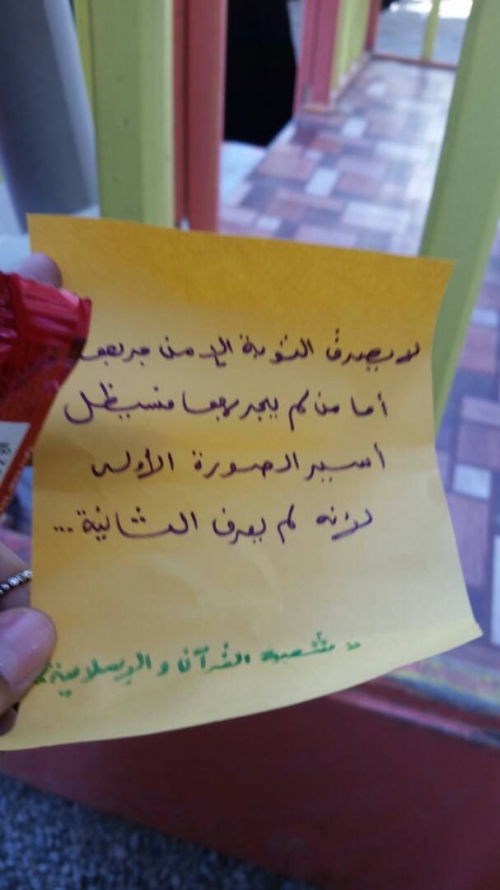 لا يعرف التوبة إلا من جربها
أما من لم يجربها فسيظل
أسير الصورة الأولى
لأنه لم يعرف الثانية...
" شعبة القرآن والإسلامية "